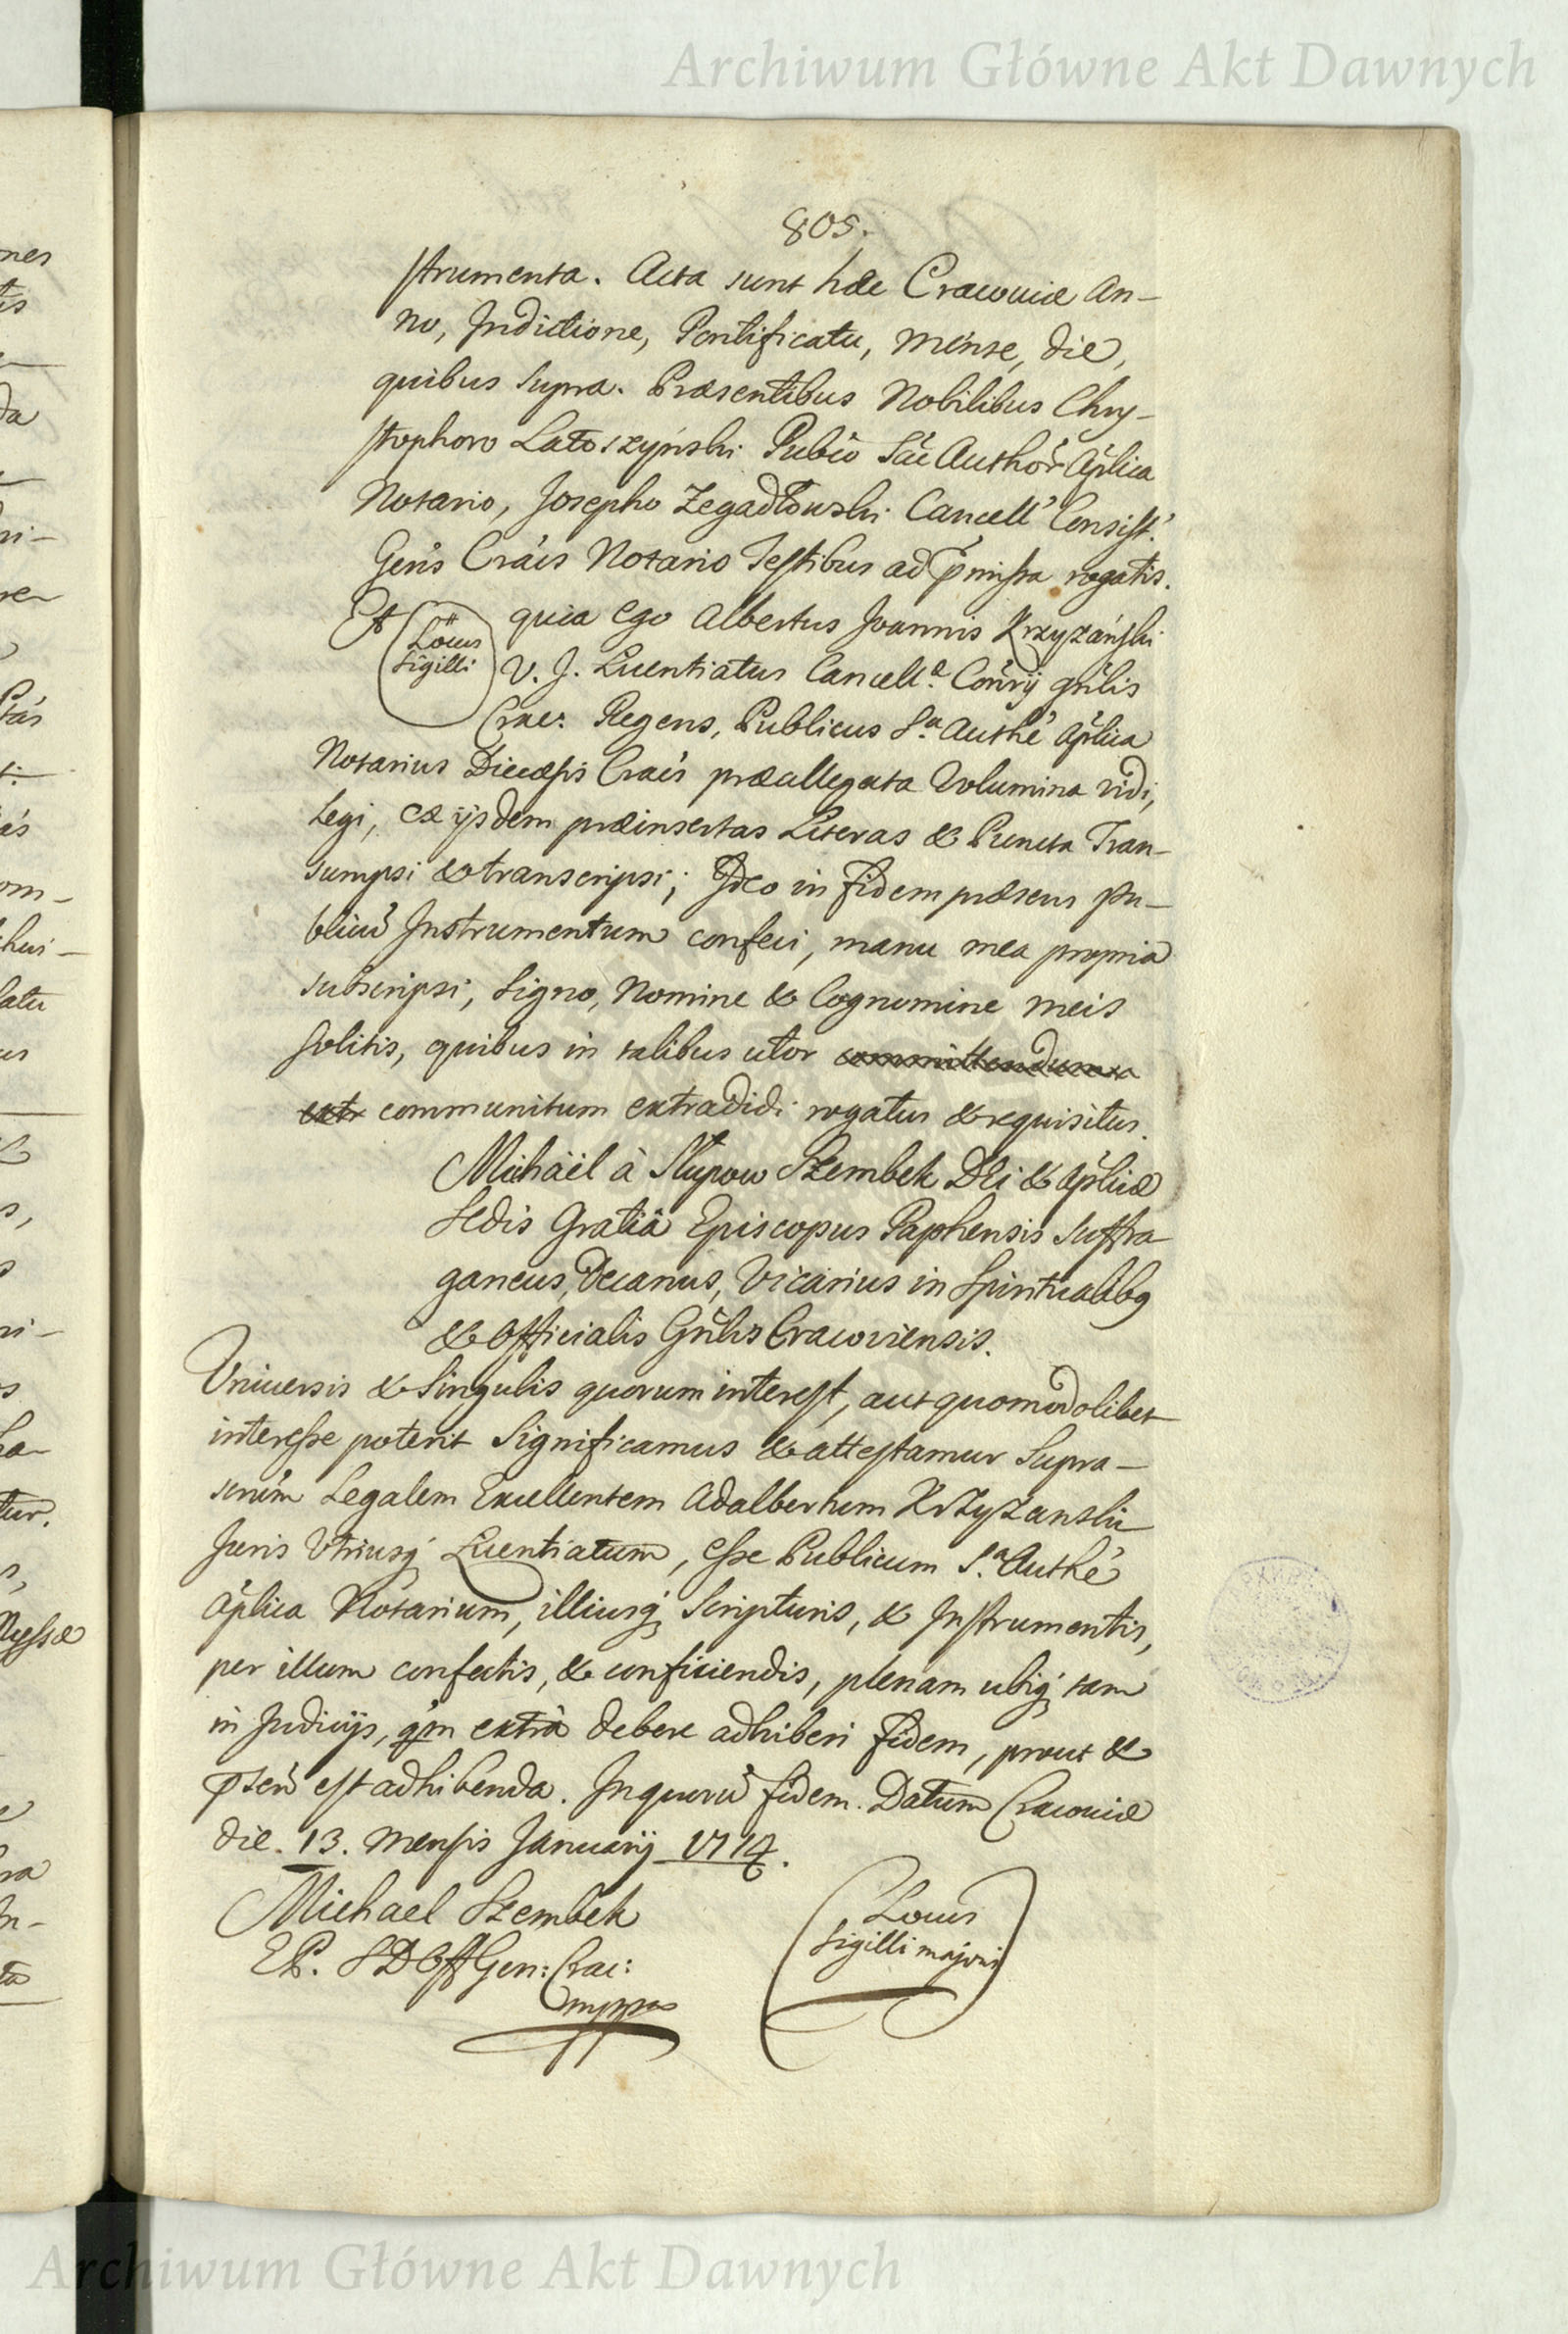 Archiwum Główne Akt Dawnych
805.
strumenta. Acta sunt hæc Cracoviæ An-
no, Indictione, Pontificatu, Mense, die,
quibus supra. Præsentibus Nobilibus Chry-
stophoro Latoszyński Pubco Sac Author Aplica
Notario, Josepho Zegadłowski Cancell Consist.
Genis Crais Notario Testibus ad pmissa rogatis.
Et quia ego Albertus Joannis Krzyzański
Locus
Sigilli
V. J. Licentiatus Cancell.æ Conrij grilis
Crac: Regens, Publicus S.a Authe Aplica
Notarius Diecæsis Crais præallegata Volumina vidi,
Legi, ex ijsdem præinsertas Literas & Puncta Tran-
sumpsi & transcripsi; Ideo in fidem præsens Pu-
blicu Instrumentum confeci, manu mea propria
subscripsi, Signo, Nomine & Cognomine meis
solitis, quibus in talibus utor
communitum extradidi rogatus & requisitus.
Michaël à Słupow Szembek Dei & Aplicæ
Sedis Gratiâ Episcopus Paphensis Suffra-
ganeus, Decanus, Vicarius in Spiritualibq
& Officialis Grilis Cracoviensis.
Universis & Singulis quorum interest, aut quomodolibet
interesse poterit Significamus & attestamur Supra-
scrim Legalem Excellentem Adalbertum Krzyżanski
Juris Utriusq Licentiatum, esse Publicum S.a Authe
Aplica Notarium, illiusq Scripturis, & Instrumentis,
per illum confectis, & conficiendis, plenam ubiq tam
in Judicijs, qm extrà debere adhiberi fidem, prout &
pseu est adhibenda. In quoru fidem. Datum Cracoviæ
die. 13. Mensis Januarij 1714.
Michael Szembek
EP. SD Off Gen: Crac:
mppa
Locus
Sigilli majoris
Archiwum Główne Akt Dawnych